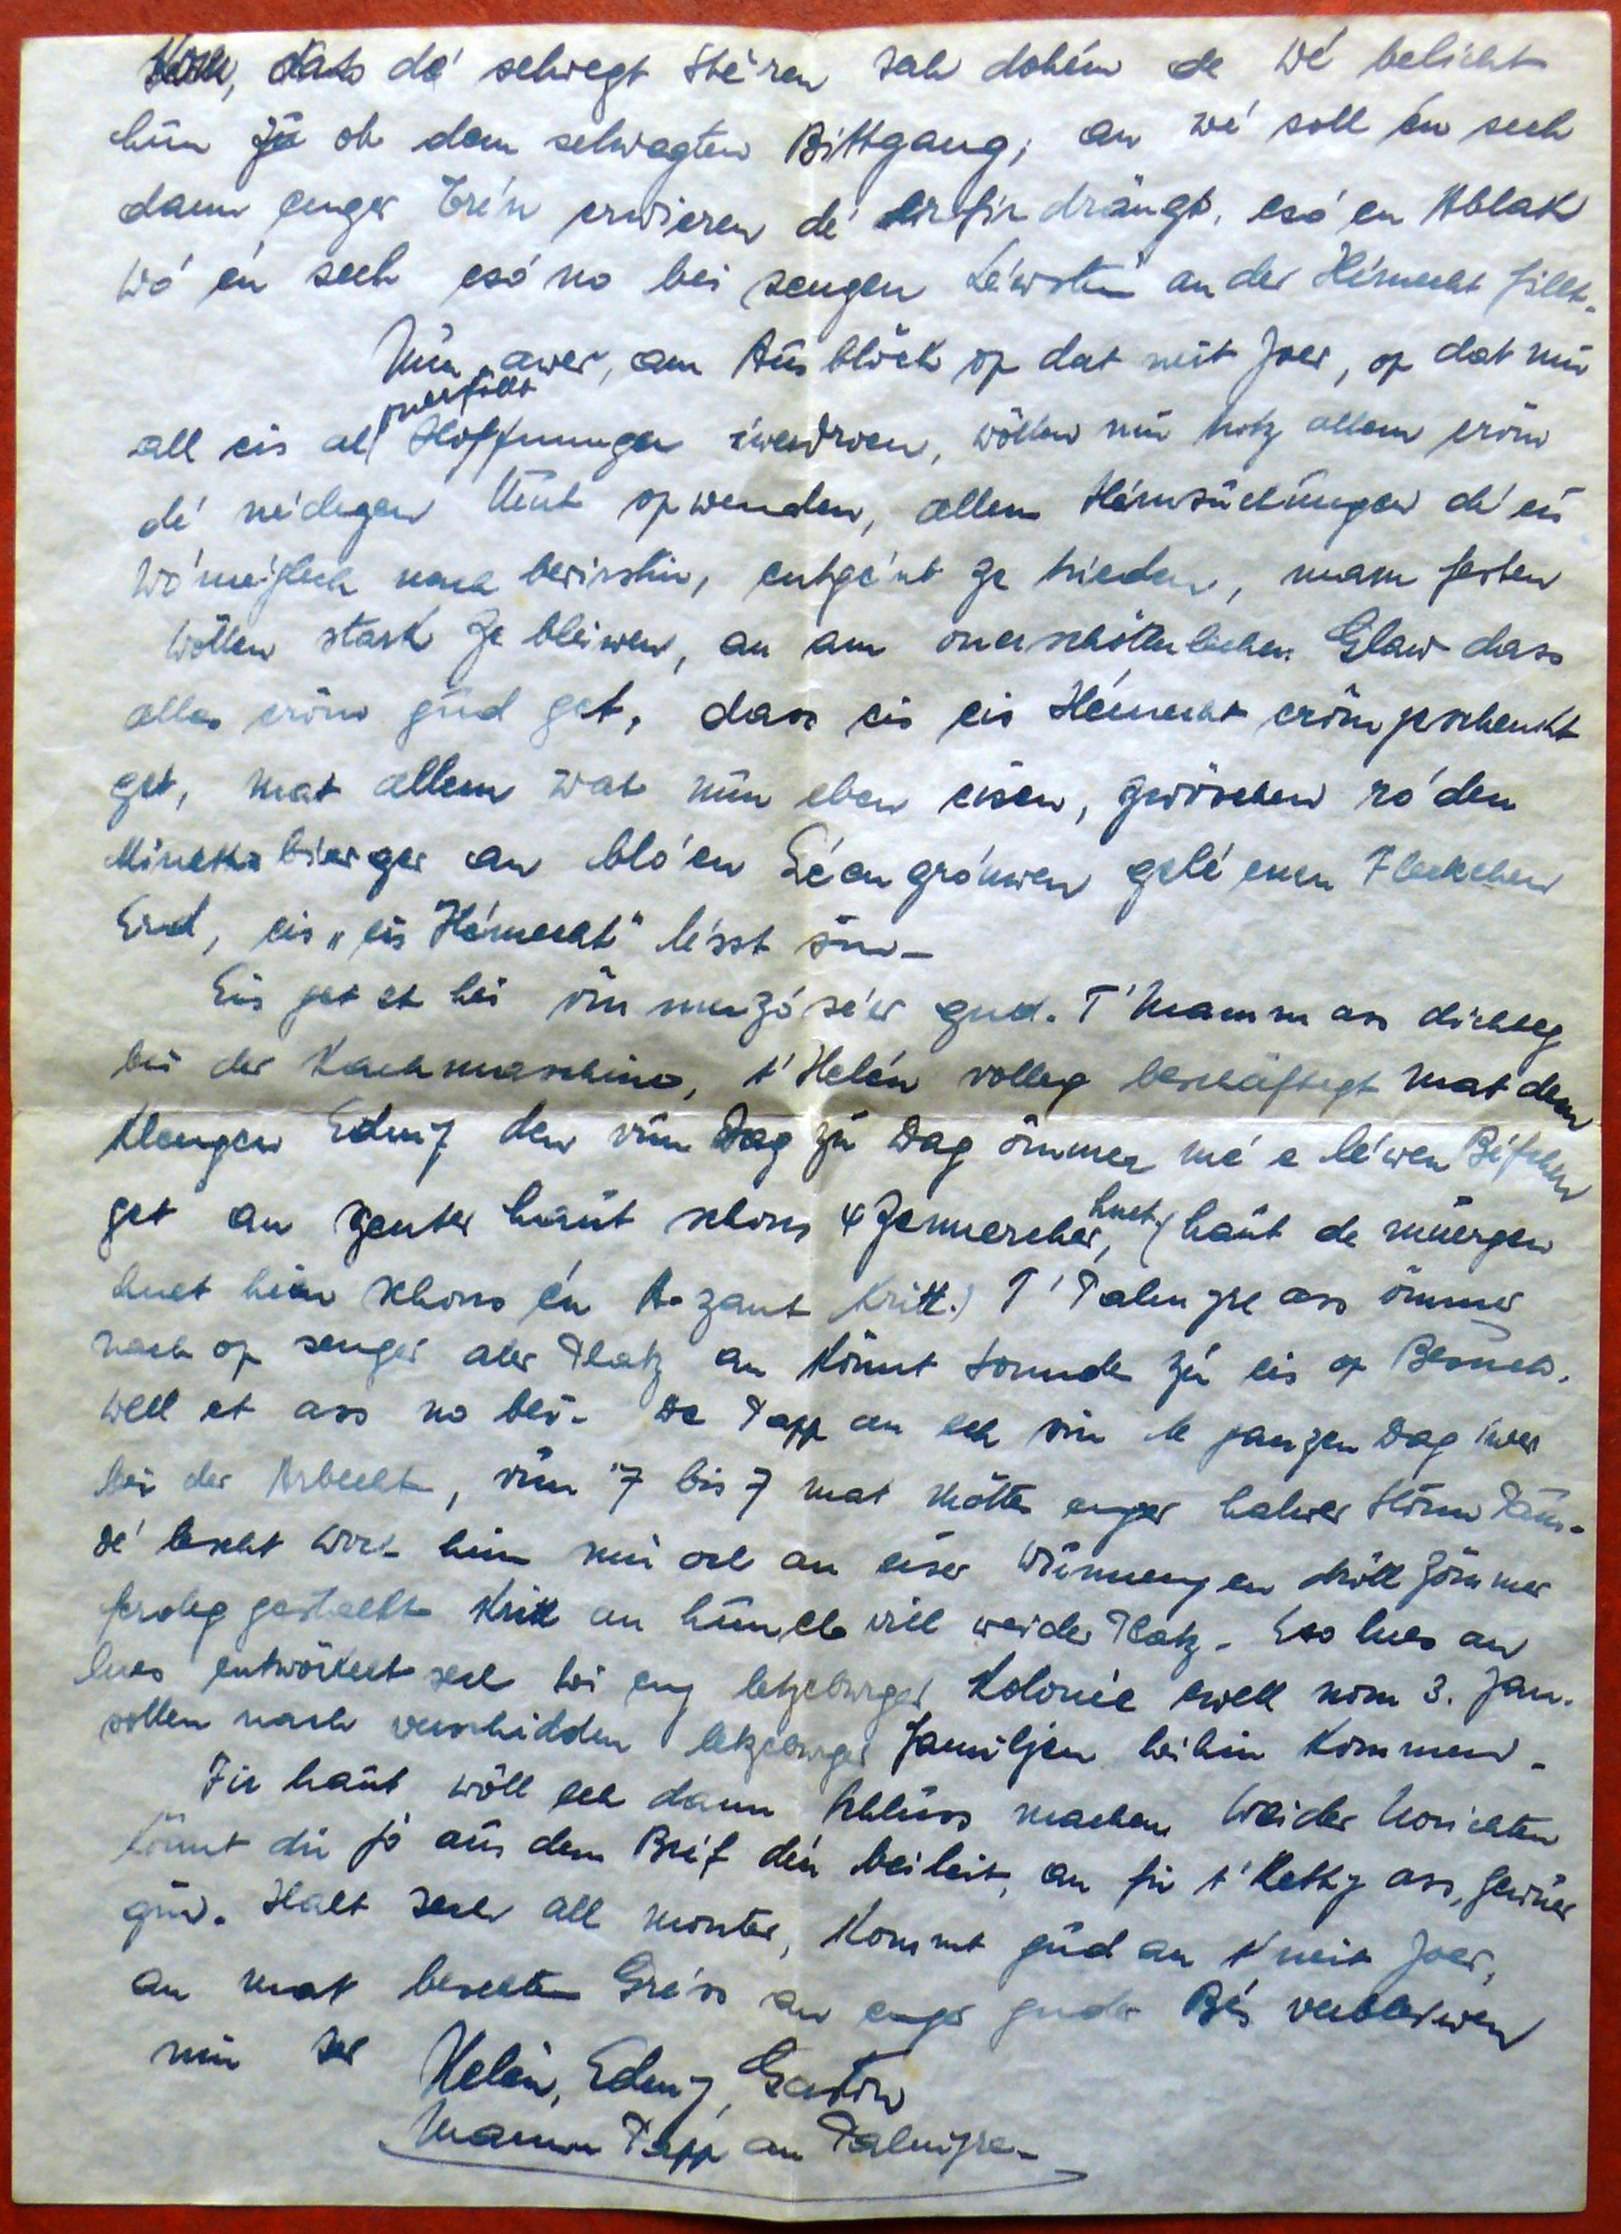 dats dé selwegt Stéren sech dohém de Wé belicht
hun zu ob dem selwegten Bittgang, an wé soll én sech
dann enger Tréin erwieren dé erfir drängt, esó en Ablak
wó én sech esó no bei sengen Léwsten an der Hémecht fillt.
Nun awer, am Ausbléck op dat neit Joer, op dat mir
onerfëllt
all eis al Hoffnungen iwerdroen, wöllen mir trotz allem eröm
dé néidegen Mut opwenden, allem Hémsuchungen dé eis
wóméiglech nach bevirstin, entgént ze trieden, mam festen
Wöllen stark ze bleiwen, an am onerschötterlechen Glaw dass
alles eröm gud get, dass eis eis Hémecht eröm geschenkt
get, mat allem wat nun eben eisen, zwöschen róden
Minettsbierger an bló'en Lé'en gróuwen gelé'enen Fleckchen
Erd, eis "eis Hémecht" lésst sin -
Eis get et hei ön nerzó sé'er gud. T'Mamm ass dichteg
bei der Kachmaschinn, t'Helén volleg beschäftegt mat dem
klengen Edmy den vum Dag zu Dag ömmer mé e léwen Béifchen
get an zenter haut schons 4 Zennercher huet, (haut de muergen
huet hien schons én A-zant kritt.) T' Palmyre ass ömmer
nach op senger aler Platz an könnt Sonndes zu eis op Besuch,
well et ass no bei. De Papp an ech sin de ganzen Dag iwer
bei der Arbecht, vun 7 bis 7 mat Mötten enger halwer Stonn Paus.
Dé lescht Woch hun mir och an eiser Wunneng en drött Zömmer
ferdeg gestallt kritt an hun elo vill weider Platz. Eso lues an
lues entwöckelt sech hei eng letzeburger Kolonie well vom 3. Jan.
sollen nach verschidden letzeburger Familjen heihin kommen.
Fir haut wöll ech dann Schluss machen. Weider Norichten
könnt dir jó aus dem Bréif dén beileit, an fir t'Ketty ass, gewuer
gin. Halt Iech all monter, kommt gud an t'neit Joer,
an mat beschten Gréiss an enger gudder Bés verbleiwen
mir Ier Helén, Edmy, Gaston
Mamm Papp an Palmyre -